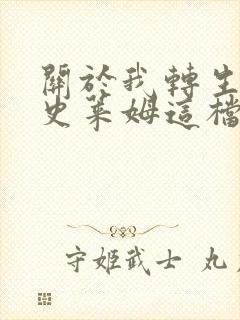 關於我轉生
史萊姆這檔
守姬武士 丸